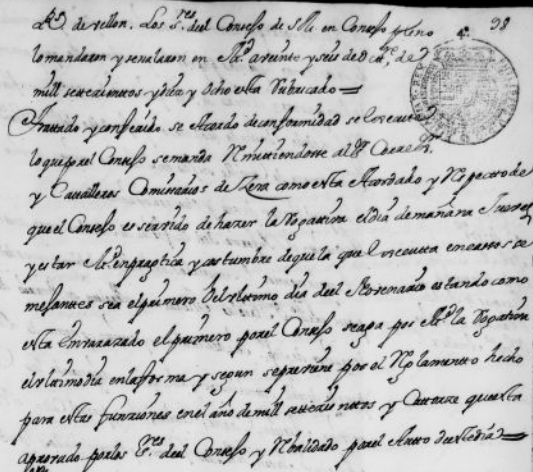 98
Rs de vellon. Los Sres. del Consejo de S M. en Consejo pleno
lo mandaron y señalaron en Md. a veinte y seis de Octre. de
mill settecientos y diez y Ocho esta Rubricado =
Trattado y conferido se Acordo de conformidad se execute
lo que por el Consejo se manda Remittiendose al Sr. Correxr.
y Cavalleros Comisarios de fiera como esta Acordado y Respecto de
que el Consejo es servido de hazer la Rogattiva el dia de mañana Jueves
y estar Md. en practtica y costumbre de que la que executta en casos se
mejantes sea el primero o el ultimo dia del Novenario estando como
esta embarazado el primero por el Consejo se aga por Md. la Rogativa
el ultimo dia en la forma y segun se previene por el Reglamentto hecho
para estas funziones en el año de mill settecientos y Cattorze que esta
aprovado por los Sres. del Consejo y Revalidado por el Autto de este dia =